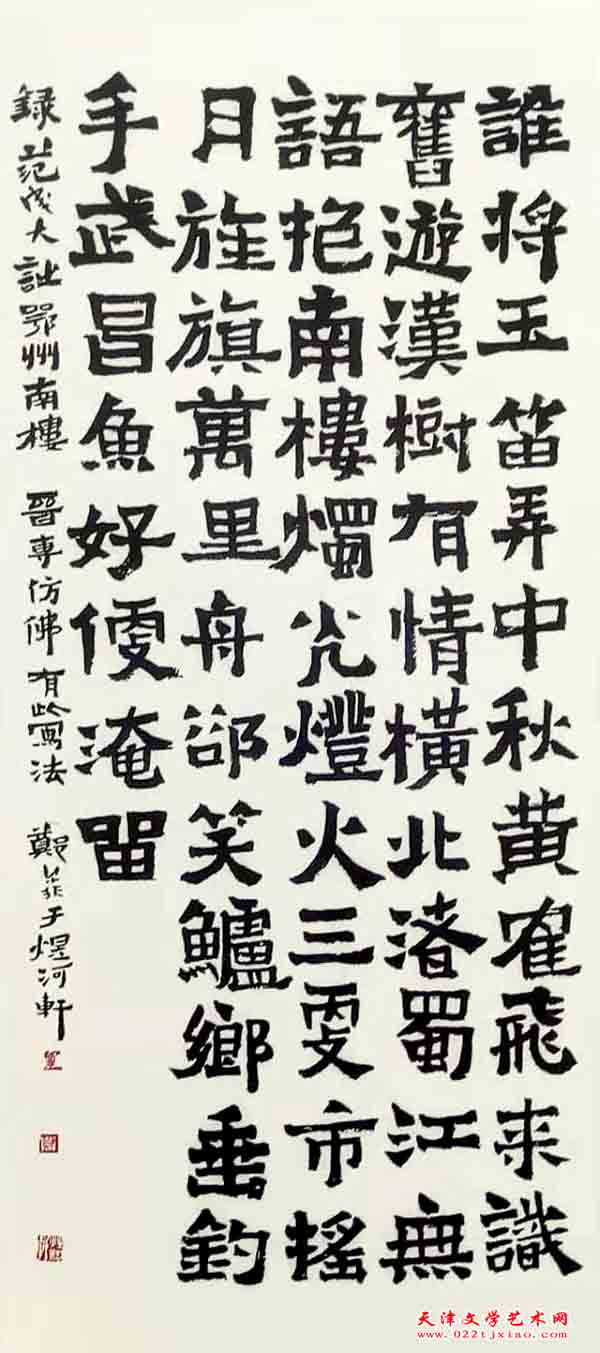 誰將玉笛弄中秋黄隺飛来識
舊遊漢樹有情横北渚蜀江無
語抱南樓燭光燈火三更市摇
月旌旗萬里舟卻笑鱸鄉垂釣
手武昌魚好便淹留
録范成大鄂州南樓 晉專仿佛有此寫法 鄭于煜河軒
天津文学艺术网
www.022tjxiao.com